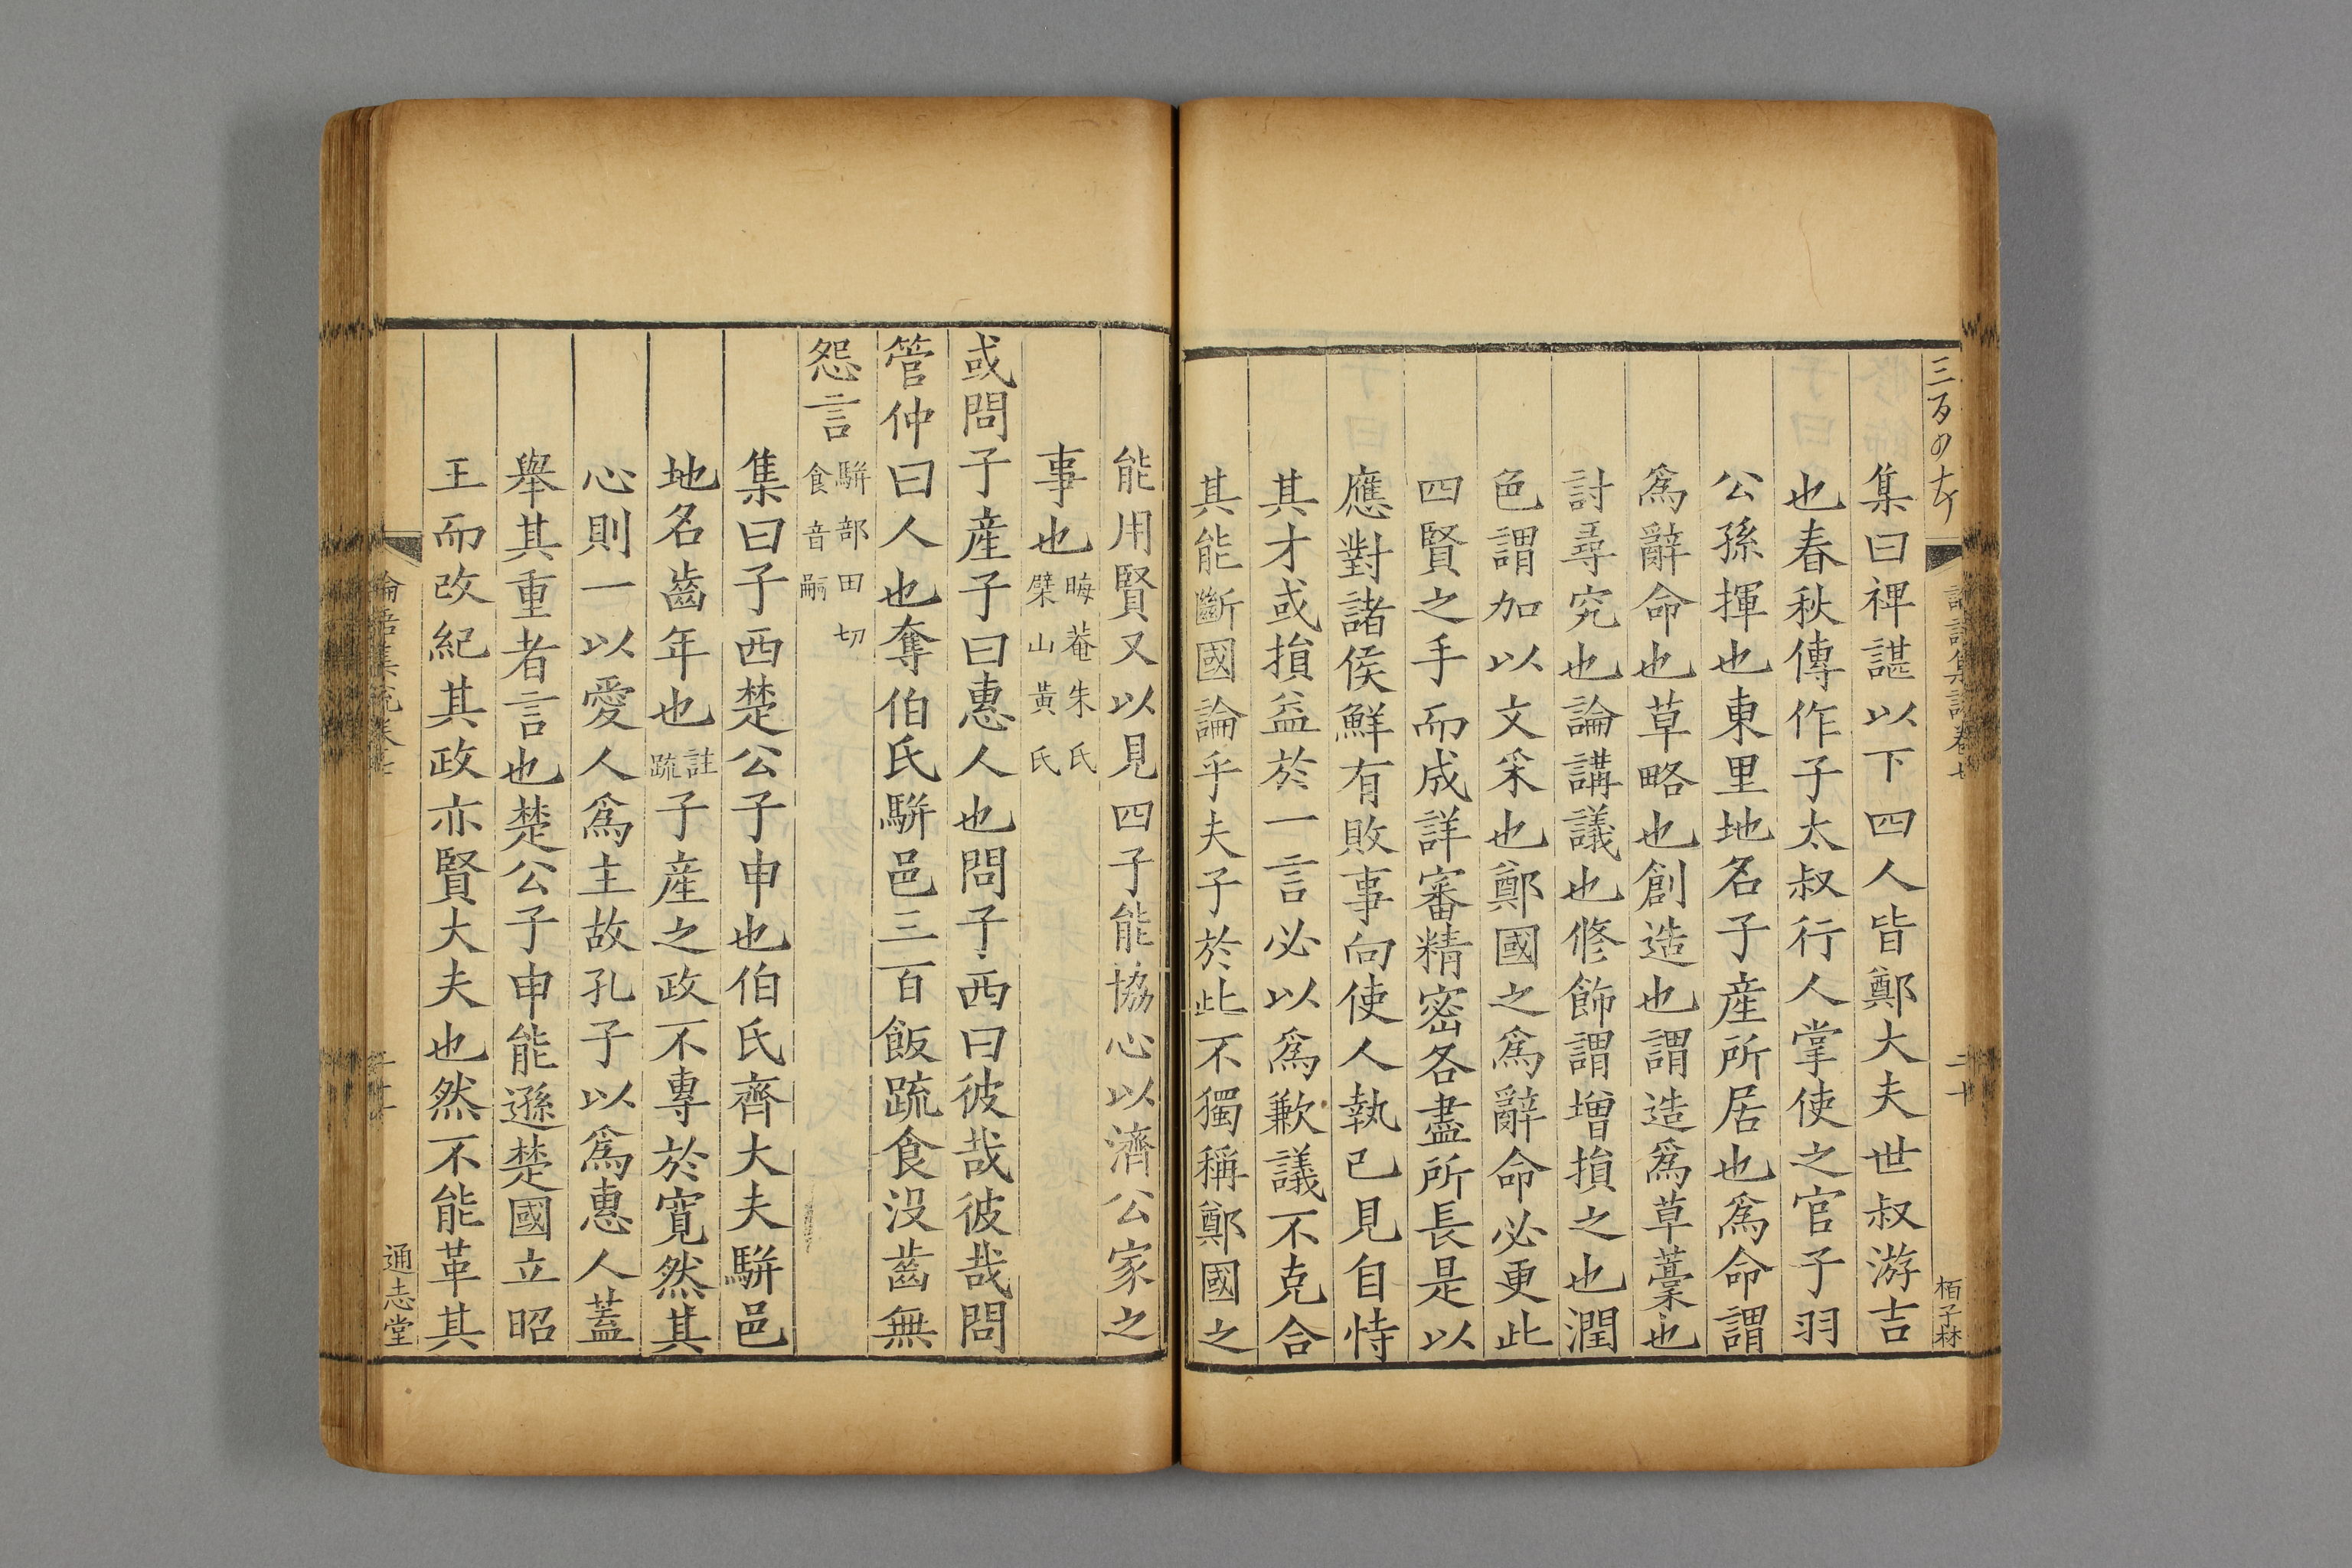 集曰裨諶以下四人皆鄭大夫世叔游吉
也春秋傳作子太叔行人掌使之官子羽
公孫揮也東里地名子産所居也爲命謂
爲辭命也草略也創造也謂造爲草藁也
討尋究也論講議也修飾謂增損之也潤
色謂加以文采也鄭國之爲辭命必更此
四賢之手而成詳審精密各盡所長是以
應對諸侯鮮有敗事向使人執己見自恃
其才或損益於一言必以爲歉議不克合
其能斷國論乎夫子於此不獨稱鄭國之
能用賢又以見四子能協心以濟公家之
事也晦菴朱氏檗山黃氏
或問子産子曰惠人也問子西曰彼哉彼哉問
管仲曰人也奪伯氏駢邑三百飯疏食没齒無
怨言駢部田切食音嗣
集曰子西楚公子申也伯氏齊大夫駢邑
地名齒年也註疏子産之政不專於寬然其
心則一以愛人爲主故孔子以爲惠人蓋
舉其重者言也楚公子申能遜楚國立昭
王而改紀其政亦賢大夫也然不能革其
通志堂